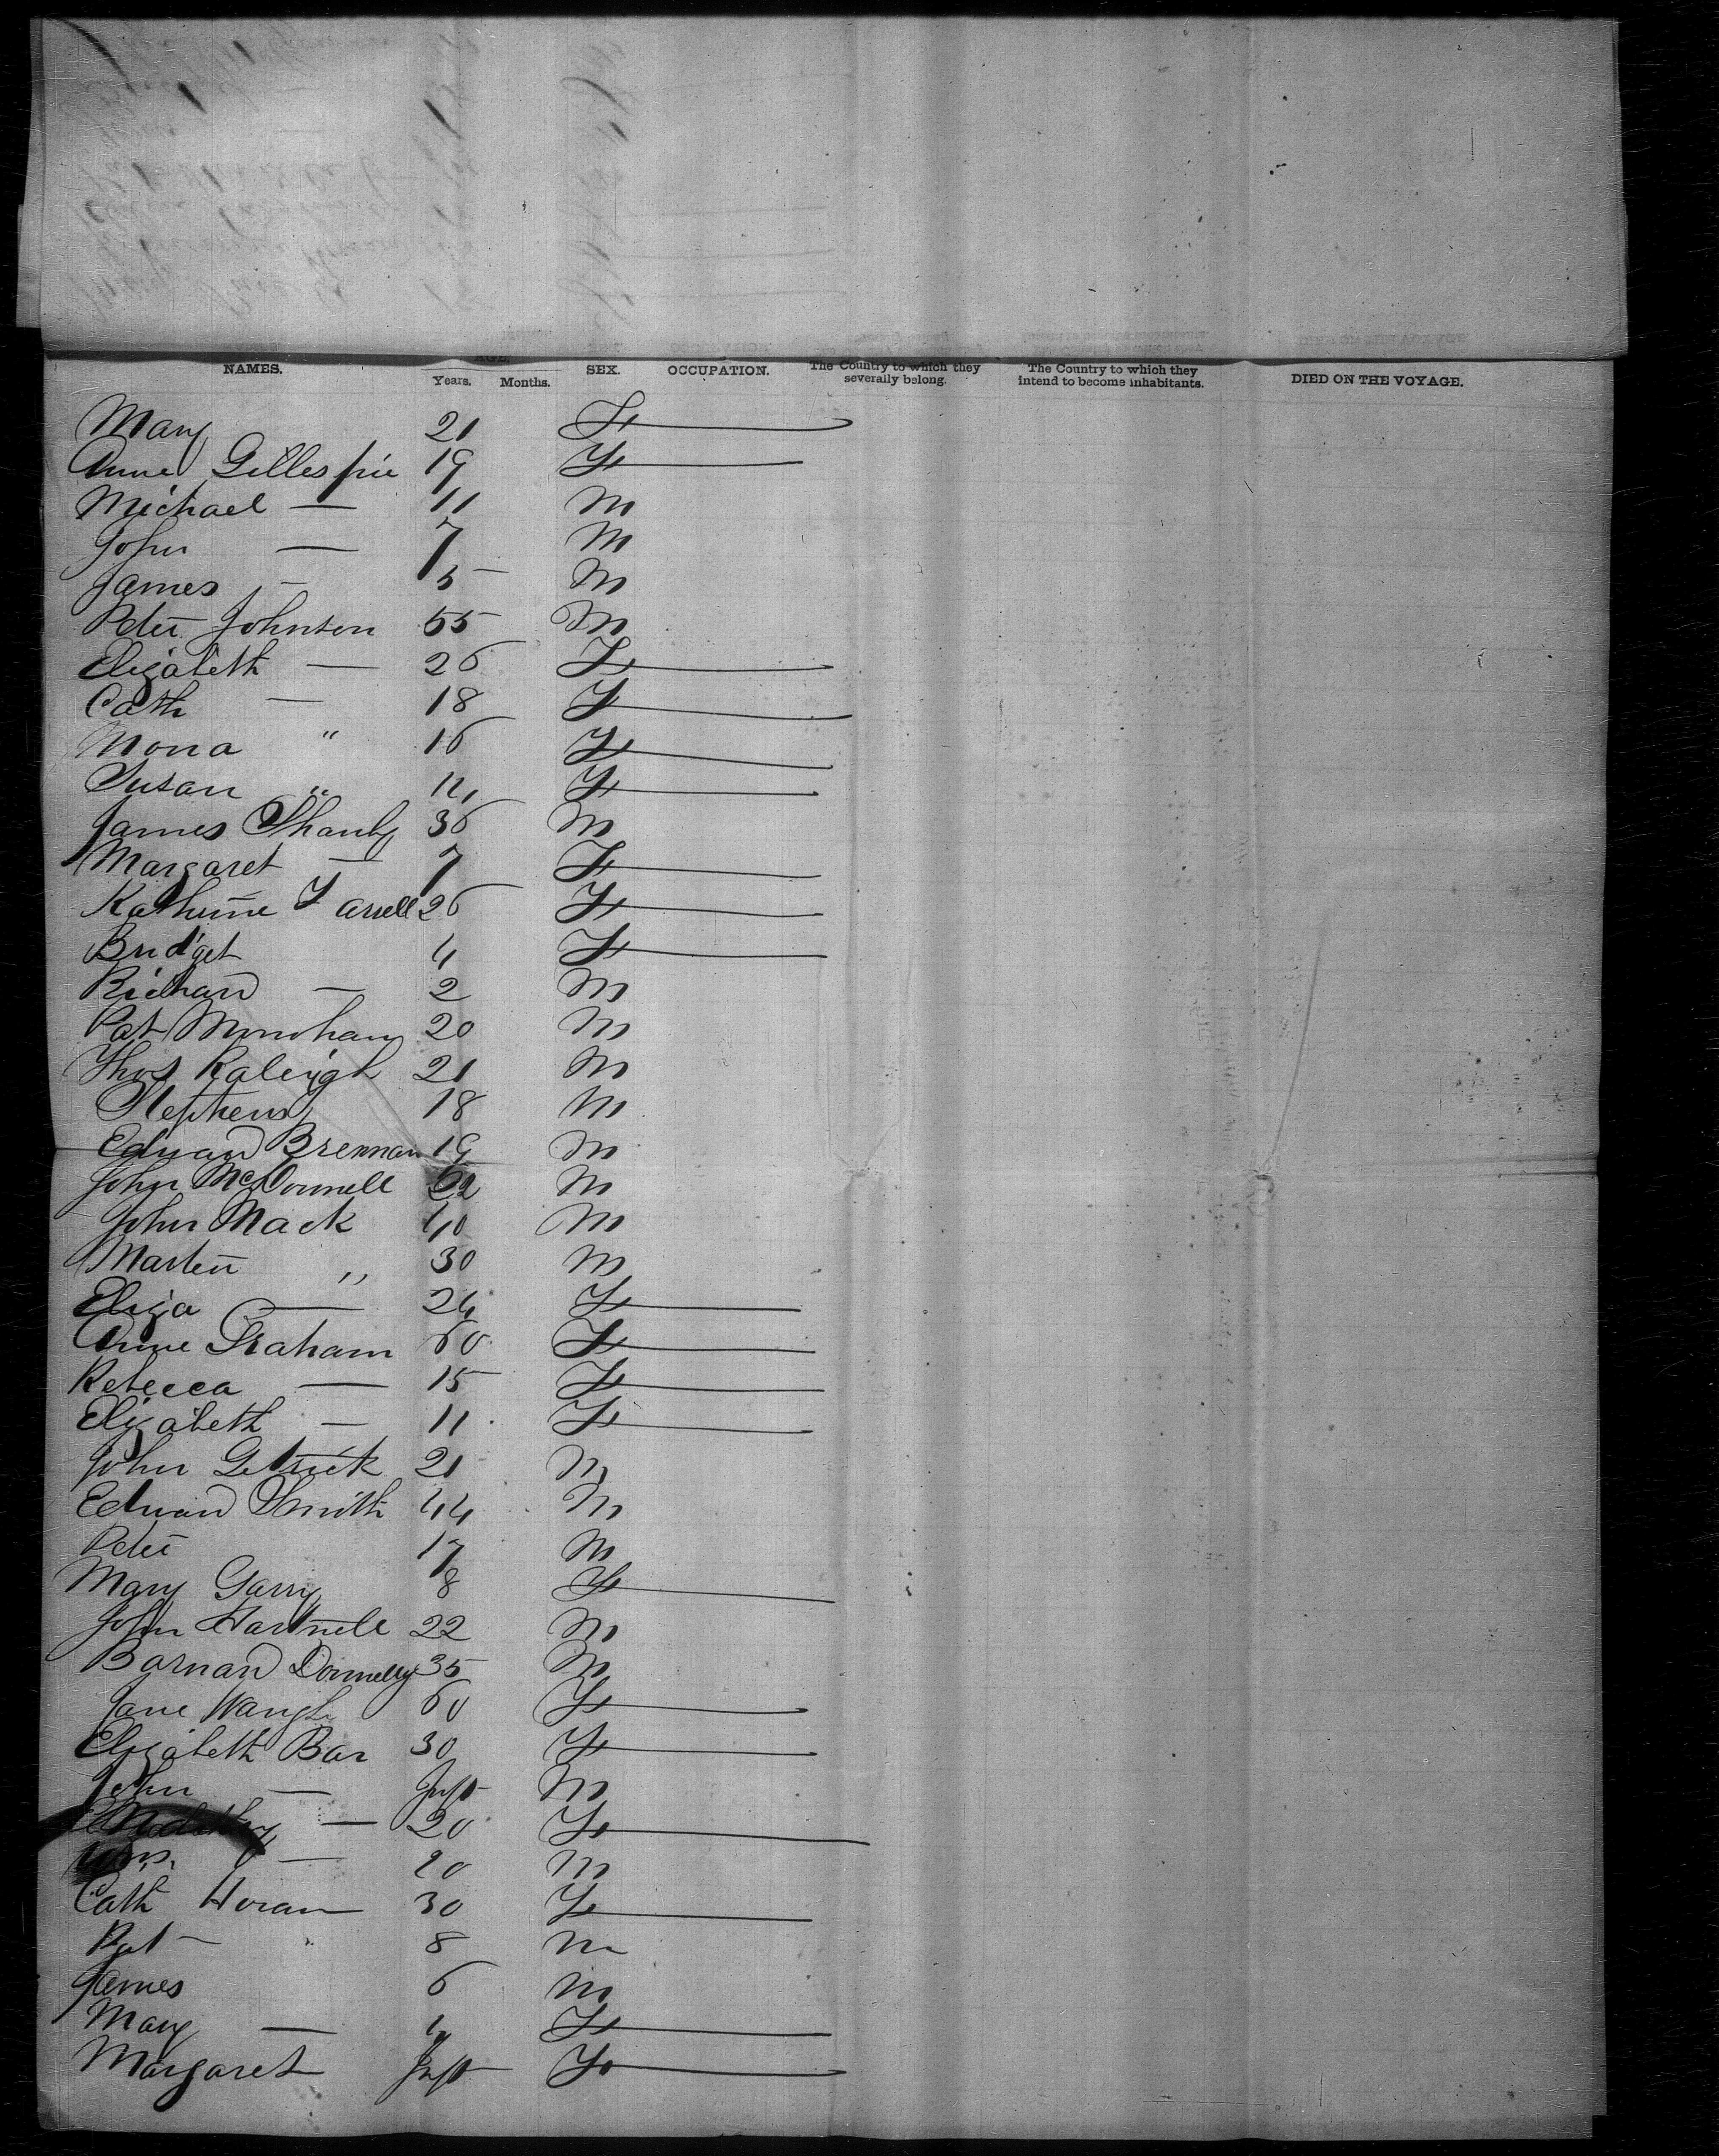 NAMES. AGE. Years. Months. SEX. OCCUPATION. The Country to which they severally belong. The Country to which they intend to become inhabitants. DIED ON THE VOYAGE.
Mary 21 F
Anne Gillespie 19 F
Michael — 11 M
John — 7 M
James — 5 M
Peter Johnson 55 M
Elizabeth — 26 F
Cath — 18 F
Mona " 16 F
Susan " 11 F
James Shanly 36 M
Margaret — 7 F
Katherine Farrell 26 F
Bridget 4 F
Richard — 2 M
Pat Monohan 20 M
Thos Raleigh 21 M
Stephens 18 M
Edward Brennan 19 M
John McDonnell 22 M
John Mack 40 M
Martin " 30 M
Eliza — 24 F
Anne Graham 60 F
Rebecca — 15 F
Elizabeth — 11 F
John Getrick 21 M
Edward Smith 44 M
Peter 17 M
Mary Garry 8 F
John Hartnell 22 M
Barnard Donnelly 35 M
Jane Waugh 60 F
Elizabeth Bar 30 F
John — Inft M
— 20 F
Wm. — 20 M
Cath Horan 30 F
Pat " 8 M
James 6 M
Mary — 4 F
Margaret Inft F